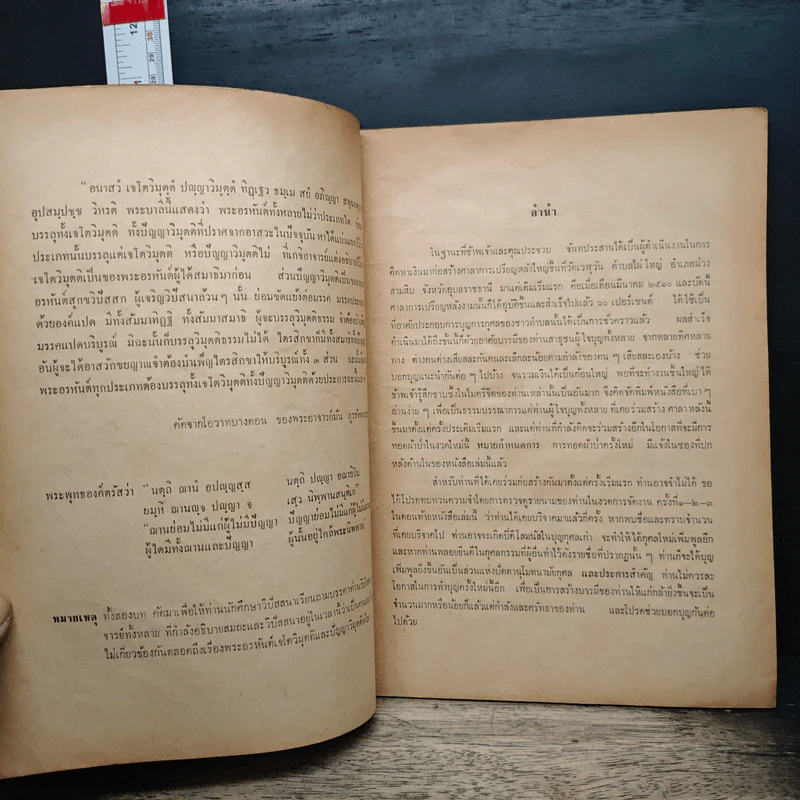 "อนาสวํ เจโตวิมุตฺตึ ปญฺญาวิมุตฺตึ ทิฏฺเฐว ธมฺเม สยํ อภิญฺญา
อุปสมฺปชฺช วิหรติ พระบาลีนี้แสดงว่า พระอรหันต์ทั้งหลายไม่ว่าประเภทใด
บรรลุทั้งเจโตวิมุตติ ทั้งปัญญาวิมุตติที่ปราศจากอาสวะในปัจจุบัน
ประเภทนั้นบรรลุแต่เจโตวิมุตติ หรือปัญญาวิมุตติไม่ ที่เกจิอาจารย์แต่งอธิบาย
เจโตวิมุตติเป็นของพระอรหันต์ผู้ได้สมาธิมาก่อน ส่วนปัญญาวิมุตติเป็น
อรหันต์สุกขวิปัสสก ผู้เจริญวิปัสนาล้วนๆ นั้น ย่อมขัดแย้งต่อมรรค
ด้วยองค์แปด มีทั้งสัมมาทิฏฐิ ทั้งสัมมาสมาธิ ผู้จะบรรลุวิมุตติธรรม
มรรคแปดบริบูรณ์ มิฉะนั้นก็บรรลุวิมุตติธรรมไม่ได้ ไตรสิกขาก็มีทั้ง
อันผู้จะได้อาสวักขยญาณจำต้องบำเพ็ญไตรสิกขาให้บริบูรณ์ทั้ง ๓ ส่วน
พระอรหันต์ทุกประเภทต้องบรรลุทั้งเจโตวิมุตติทั้งปัญญาวิมุตติด้วยประการ
คัดจากโอวาทบางตอน ของพระอาจารย์มั่น
พระพุทธองค์ตรัสว่า "นตฺถิ ฌานํ อปญฺญสฺส นตฺถิ ปญฺญา
ยมฺหิ ฌานญฺจ ปญฺญา จ เสฺว นิพฺพานสนฺติเก"
"ฌานย่อมไม่มีแก่ผู้ไม่มีปัญญา ปัญญาย่อมไม่มีแก่
ผู้ใดมีทั้งฌานและปัญญา ผู้นั้นอยู่ใกล้พระนิพพาน
หมายเหตุ ทั้งสองบท คัดมาเพื่อให้ท่านนักศึกษาวิปัสสนาเรียนถามบรรดาท่าน
จารย์ทั้งหลาย ที่กำลังอธิบายสมถะและวิปัสสนาอยู่ในเวลานี้ว่าเป็น
ไม่เกี่ยวข้องกันตลอดถึงเรื่องพระอรหันต์เจโตวิมุตติและปัญญาวิมุตติ
คำนำ
ในฐานะที่ข้าพเจ้าและคุณประจวบ จันทประสานได้เป็นผู้ดำเนินงานในการ
คิดหาเงินมาก่อสร้างศาลาการเปรียญหลังใหญ่ขึ้นที่วัดเวฬุวัน ตำบลไผ่ใหญ่ อำเภอม่วง
สามสิบ จังหวัดอุบลราชธานี มาแต่เดิมเริ่มแรก คือเมื่อเดือนมีนาคม ๒๕๑๐ และบัดนี้
ศาลาการเปรียญหลังงามนั้นก็ได้อุบัติขึ้นและสำเร็จไปแล้ว ๖๐ เปอร์เซนต์ ได้ใช้เป็น
ที่อาศัยประกอบการบุญการกุศลของชาวตำบลนั้นได้เป็นการชั่วคราวแล้ว ผลสำเร็จ
ดำเนินมาได้ทั้งนี้ก็ด้วยอาศัยบารมีของท่านสาธุชนผู้ใจบุญทั้งหลาย จากหลายทิศหลาย
ทาง ต่างคนต่างเสียสละกันคนละเล็กละน้อยตามกำลังของตนๆ เสียสละเองบ้าง ช่วย
บอกบุญแนะนำกันต่อๆ ไปบ้าง จนรวมเงินได้เป็นก้อนใหญ่ พอที่จะทำงานชิ้นใหญ่ได้
ข้าพเจ้ารู้สึกซาบซึ้งในไมตรีจิตของท่านเหล่านั้นเป็นอันมาก จึงคิดจัดพิมพ์หนังสือที่เบาๆ
อ่านง่ายๆ เพื่อเป็นธรรมบรรณาการแด่ท่านผู้ใจบุญทั้งหลาย ที่เคยร่วมสร้าง ศาลา หลังนี้
ขึ้นมาตั้งแต่ครั้งประเดิมเริ่มแรก และแด่ท่านที่กำลังคิดจะร่วมสร้างอีกในโอกาสที่จะมีการ
ทอดผ้าป่าในงวดใหม่นี้ หมายกำหนดการ การทอดผ้าป่าครั้งใหม่ มีแจ้งในซองที่ปก
หลังด้านในของหนังสือเล่มนี้แล้ว
สำหรับท่านที่ได้เคยร่วมก่อสร้างกันมาตั้งแต่ครั้งเริ่มแรก ท่านอาจจำไม่ได้ ขอ
ได้โปรดทบทวนความจำโดยการตรวจดูรายนามของท่านในงวดการจัดงาน ครั้งที่ ๑—๒—๓
ในตอนท้ายหนังสือเล่มนี้ ว่าท่านได้เคยบริจาคมาแล้วกี่ครั้ง หากพบชื่อและทราบจำนวน
ที่เคยบริจาคไป ท่านอาจจะเกิดปิติโสมนัสในบุญกุศลเก่า จะทำให้ได้กุศลใหม่เพิ่มพูลอีก
และหากท่านพลอยยินดีในกุศลกรรมที่ผู้อื่นทำไว้ดังรายชื่อที่ปรากฏนั้นๆ ท่านก็จะได้บุญ
เพิ่มพูลยิ่งขึ้นอันเป็นส่วนแห่งปัตตานุโมทนามัยกุศล และประการสำคัญ ท่านไม่ควรละ
โอกาสในการทำบุญครั้งใหม่นี้อีก เพื่อเป็นการสร้างบารมีของท่านให้แก่กล้ายิ่งขึ้นจะเป็น
จำนวนมากหรือน้อยก็แล้วแต่กำลังและศรัทธาของท่าน และโปรดช่วยบอกบุญกันต่อ
ไปด้วย